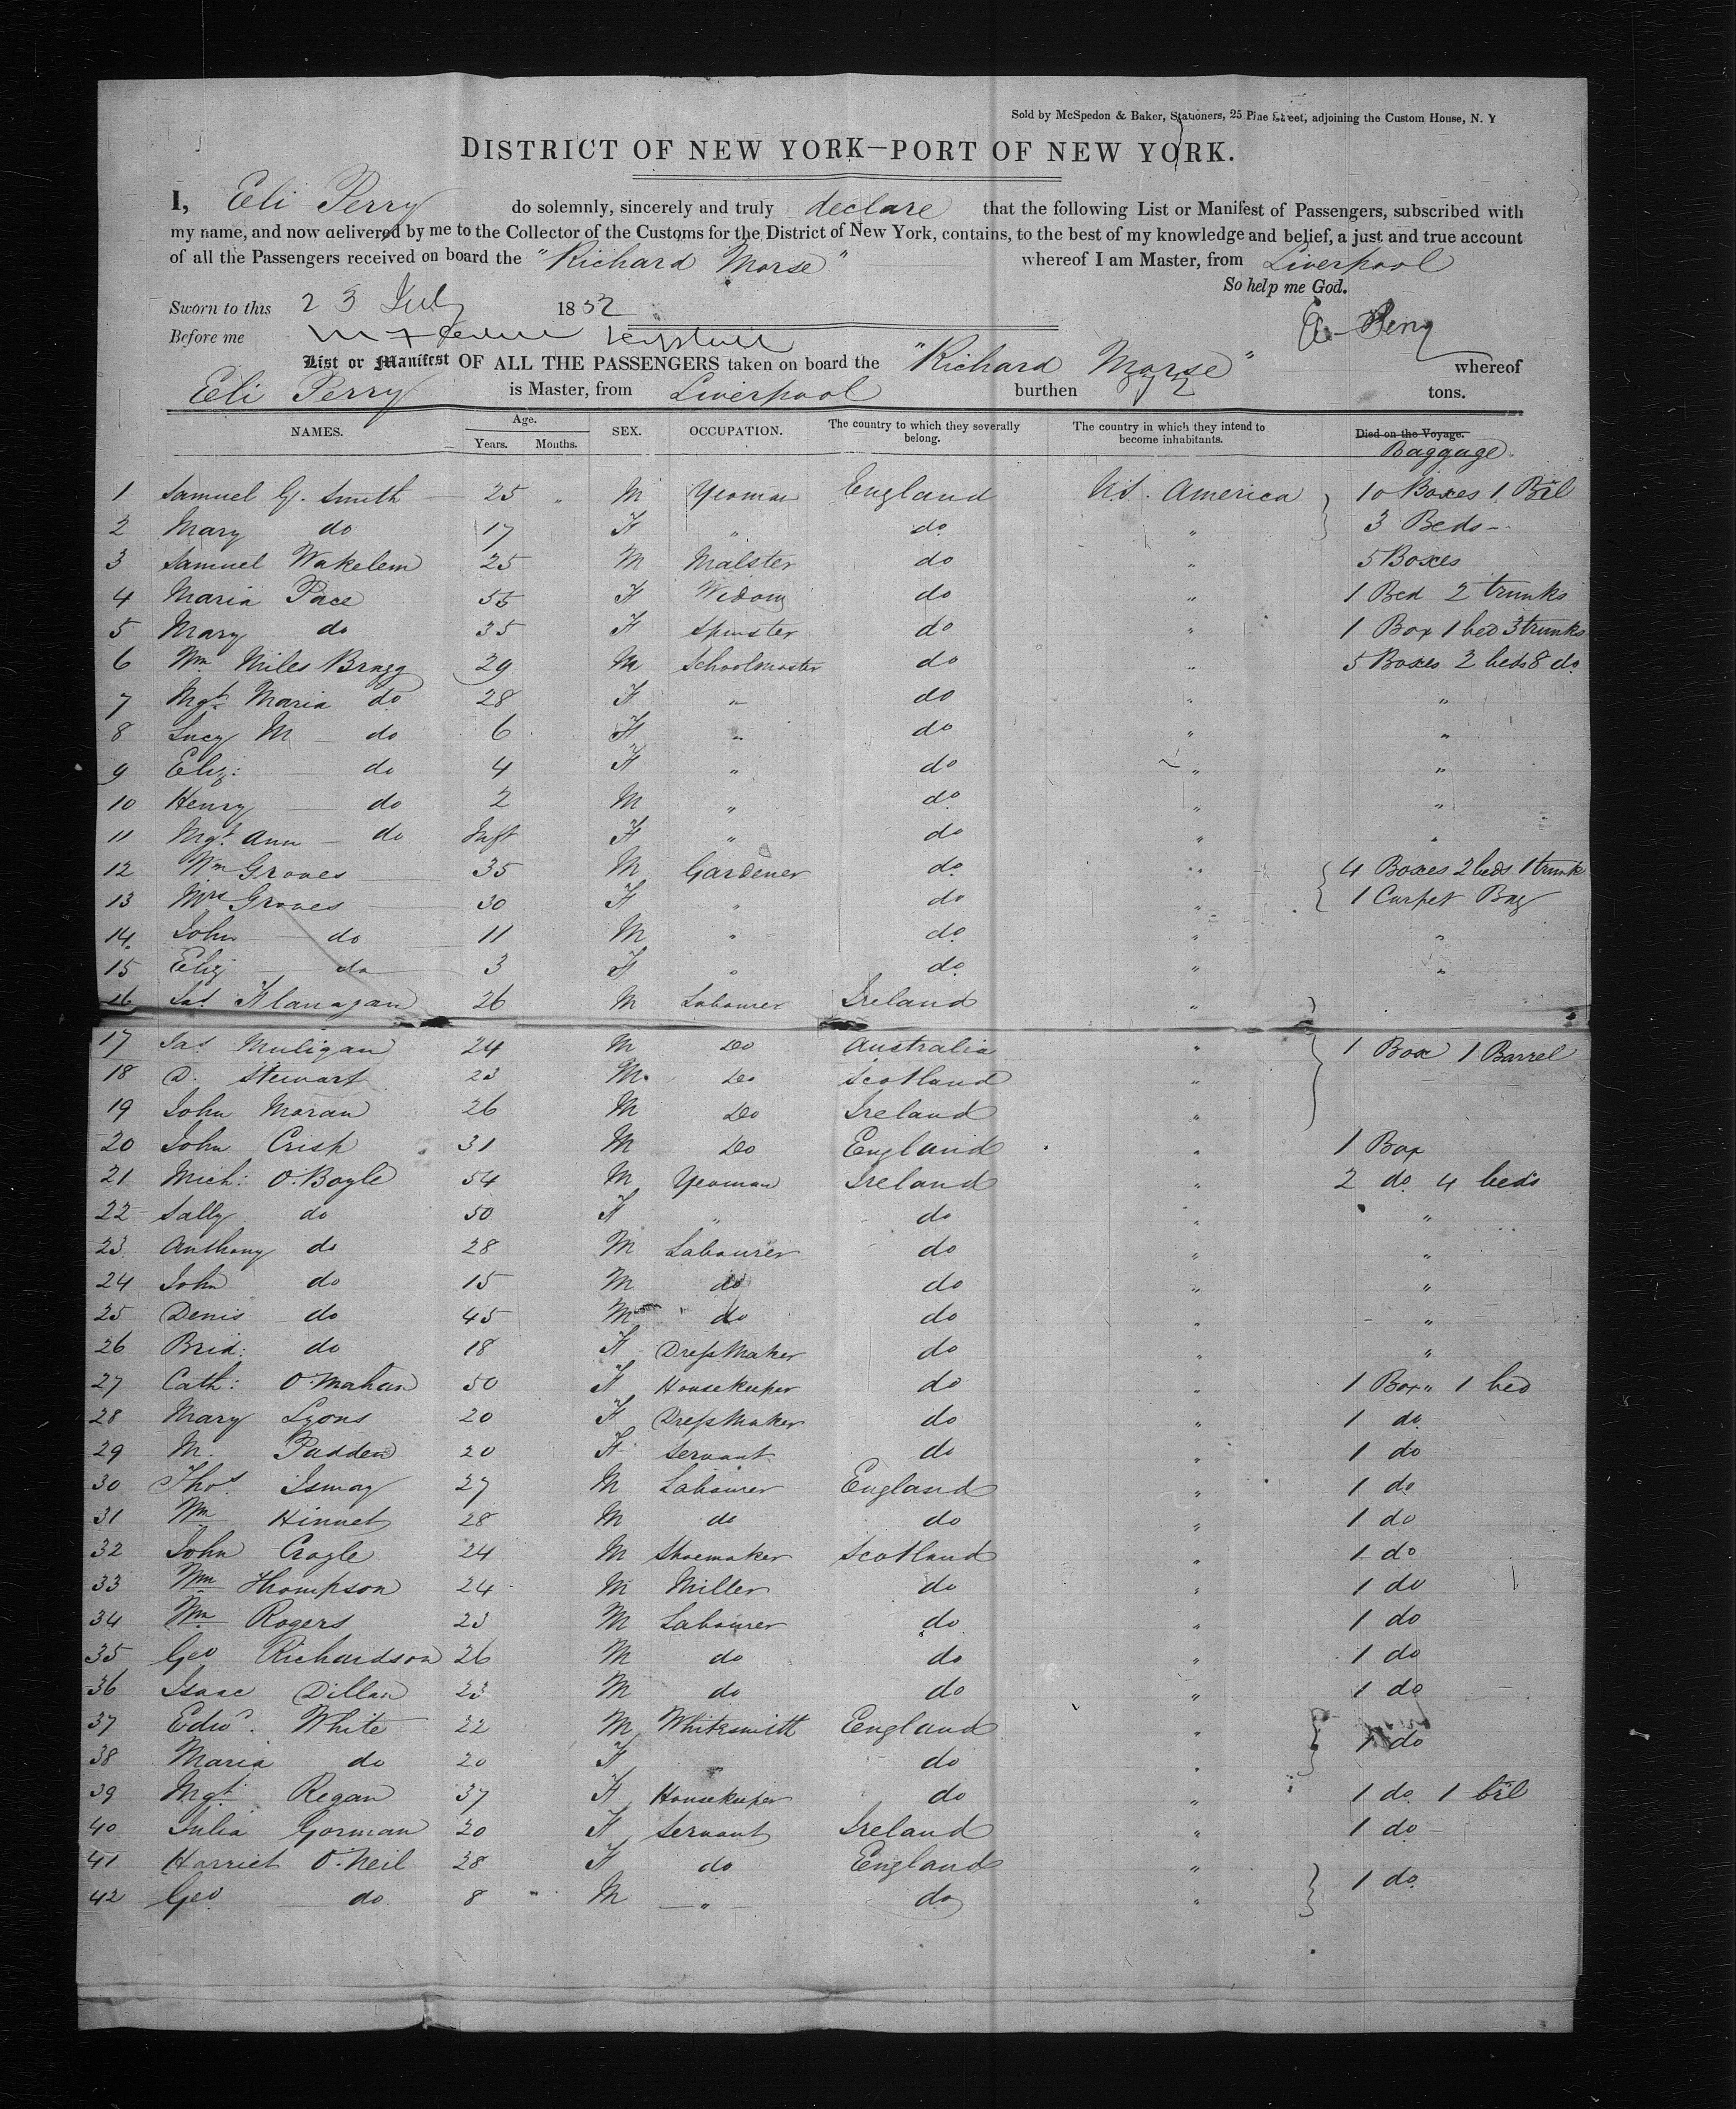 Sold by McSpedon & Baker, Stationers, 25 Pine Street, adjoining the Custom House, N. Y
DISTRICT OF NEW YORK—PORT OF NEW YORK.
I, Eli Perry do solemnly, sincerely and truly declare that the following List or Manifest of Passengers, subscribed with
my name, and now delivered by me to the Collector of the Customs for the District of New York, contains, to the best of my knowledge and belief, a just and true account
of all the Passengers received on board the "Richard Morse" whereof I am Master, from Liverpool
So help me God.
Sworn to this 23 July 1852
E Perry
Before me
List or Manifest OF ALL THE PASSENGERS taken on board the "Richard Morse" whereof
Eli Perry is Master, from Liverpool burthen tons.
NAMES. Age. Years. Months. SEX. OCCUPATION. The country to which they severally belong. The country in which they intend to become inhabitants. Died on the Voyage.
Baggage.
1 Samuel G. Smith 25 " M Yeoman England Ud. America 10 Boxes 1 Brl
2 Mary do 17 F " do " 3 Beds
3 Samuel Wakelem 25 M Malster do " 5 Boxes
4 Maria Pace 55 F Widow do " 1 Bed 2 trunks
5 Mary do 35 F Spinster do " 1 Box 1 bed 3 trunks
6 Wm Miles Bragg 29 M Schoolmaster do " 5 Boxes 2 beds 8 do
7 Mgt. Maria do 28 F " do " "
8 Lucy M do 6 F " do " "
9 Eliz: do 4 F " do " "
10 Henry do 2 M " do " "
11 Mgt. Ann do Inft F " do " "
12 Wm Groves 35 M Gardener do " 4 Boxes 2 beds 1 trunk
13 Mrs Groves 30 F " do " 1 Carpet Bag
14 John do 11 M " do " "
15 Eliz do 3 F " do " "
16 Jas Flanagan 26 M Labourer Ireland "
17 Jas Muligan 24 M Do Australia " 1 Box 1 Barrel
18 D. Stewart 23 M Do Scotland "
19 John Moran 26 M Do Ireland "
20 John Crisp 31 M Do England " 1 Box
21 Mich: O.Boyle 54 M Yeoman Ireland " 2 do 4 beds
22 Sally do 50 F " do " "
23 Anthony do 28 M Labourer do " "
24 John do 15 M do do " "
25 Denis do 45 M do do " "
26 Brid: do 18 F DressMaker do " "
27 Cath: O.Mahan 50 F Housekeeper do " 1 Box " 1 bed
28 Mary Lyons 20 F DressMaker do " 1 do
29 M. Padden 20 F Servant do " 1 do
30 Thos. Ismay 27 M Labourer England " 1 do
31 Wm 28 M do do " 1 do
32 John Cragle 24 M Shoemaker Scotland " 1 do
33 Wm Thompson 24 M Miller do " 1 do
34 Wm Rogers 23 M Labourer do " 1 do
35 Geo Richardson 26 M do do " 1 do
36 Isaac Dillan 23 M do do " 1 do
37 Edwd. White 22 M Whitesmith England " 1 do
38 Maria do 20 F " do "
39 Mgt. Regan 37 F Housekeeper do " 1 do 1 brl
40 Julia Gorman 20 F Servant Ireland " 1 do
41 Harriet O.Neil 28 F do England " 1 do
42 Geo do 8 " M " do "